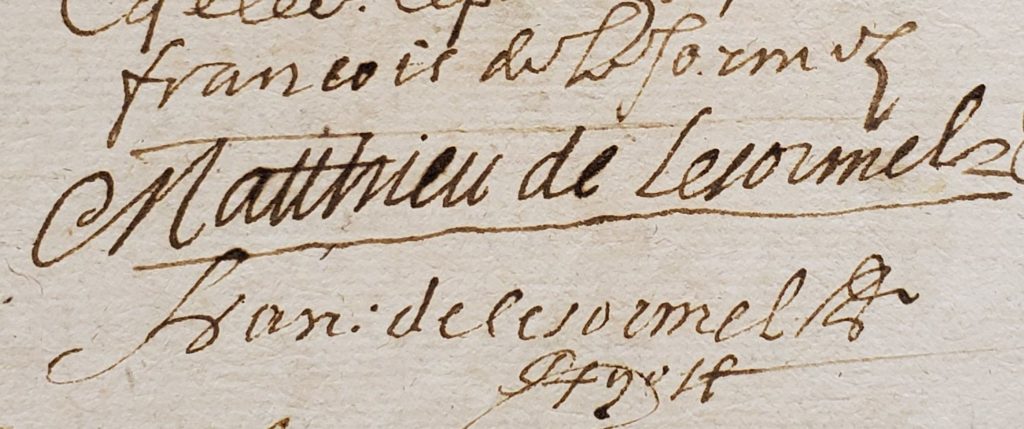 francois de Lesormel
Matthieu de Lesormel
fran: de lesormel